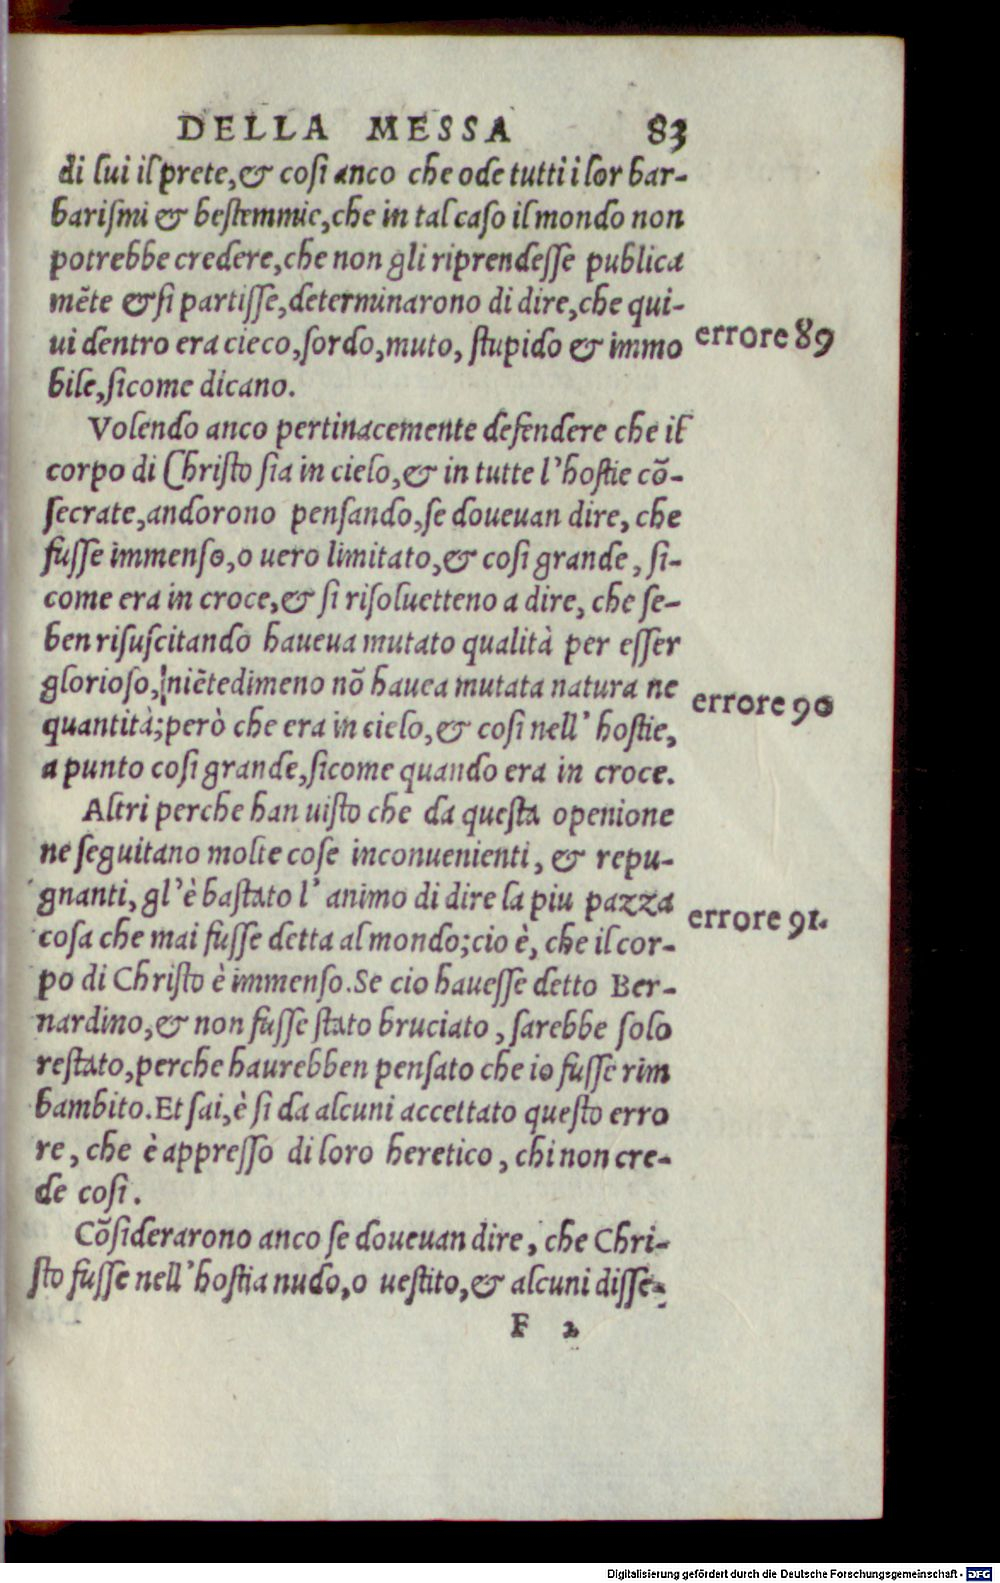 DELLA MESSA 83
di lui il prete, & cosi anco che ode tutti i lor bar-
barismi & bestemmie, che in tal caso il mondo non
potrebbe credere, che non gli riprendesse publica
mẽte & si partisse, determinarono di dire, che qui-
ui dentro era cieco, sordo, muto, stupido & immo
errore 89
bile, sicome dicano.
Volendo anco pertinacemente defendere che il
corpo di Christo sia in cielo, & in tutte l'hostie cõ-
secrate, andorono pensando, se doueuan dire, che
fusse immenso, o uero limitato, & cosi grande, si-
come era in croce, & si risoluetteno a dire, che se-
ben risuscitando haueua mutato qualità per esser
glorioso, niẽtedimeno nõ hauea mutata natura ne
errore 90
quantità; però che era in cielo, & cosi nell' hostie,
a punto cosi grande, sicome quando era in croce.
Altri perche han uisto che da questa openione
ne seguitano molte cose inconuenienti, & repu-
gnanti, gl'è bastato l' animo di dire la piu pazza
errore 91.
cosa che mai fusse detta al mondo; cio è, che il cor-
po di Christo è immenso. Se cio hauesse detto Ber-
nardino, & non fusse stato bruciato, sarebbe solo
restato, perche haurebben pensato che io fusse rim
bambito. Et sai, è si da alcuni accettato questo erro
re, che è appresso di loro heretico, chi non cre-
de cosi.
Cõsiderarono anco se doueuan dire, che Chri-
sto fusse nell'hostia nudo, o uestito, & alcuni disse-
F 2
Digitalisierung gefördert durch die Deutsche Forschungsgemeinschaft - DFG